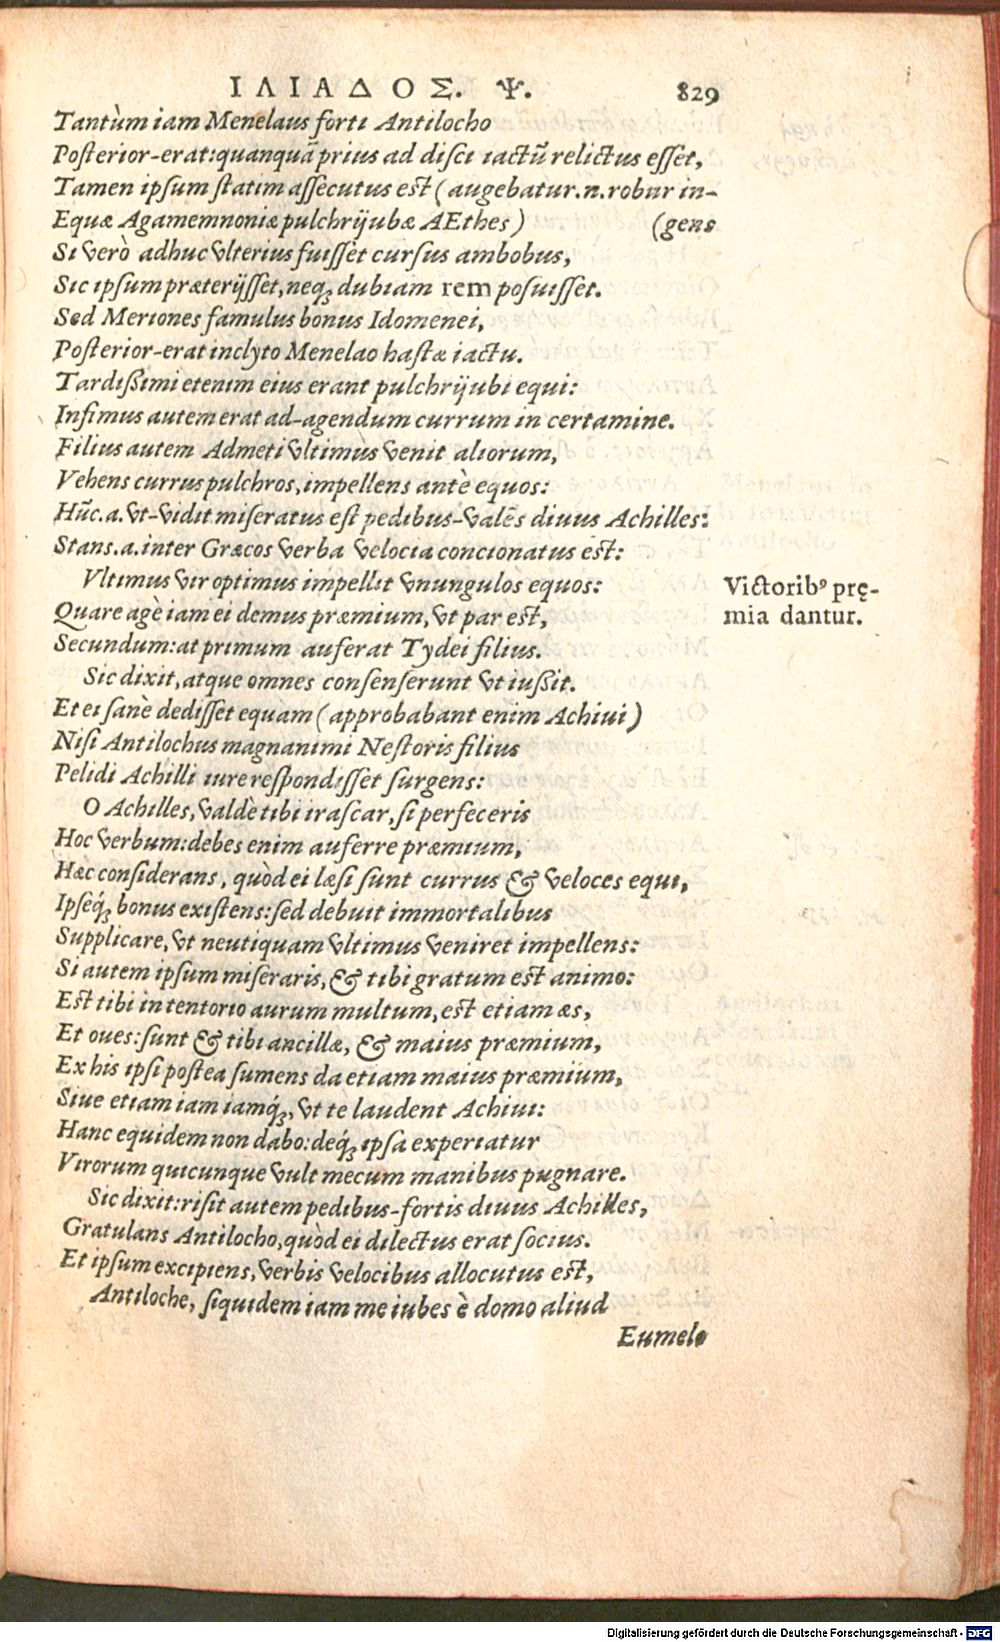 ΙΛΙΑΔΟΣ. Ψ. 829
Tantùm iam Menelaus forti Antilocho
Posterior-erat:quanquã prius ad disci iactũ relictus esset,
Tamen ipsum statim assecutus est (augebatur.n.robur in-
Equæ Agamemnoniæ pulchrijubæ AEthes) (gens
Si verò adhuc vlterius fuisset cursus ambobus,
Sic ipsum præterijsset, neq; dubiam rem posuisset.
Sed Meriones famulus bonus Idomenei,
Posterior-erat inclyto Menelao hastæ iactu.
Tardißimi etenim eius erant pulchrijubi equi:
Infimus autem erat ad-agendum currum in certamine.
Filius autem Admeti vltimus venit aliorum,
Vehens currus pulchros, impellens antè equos:
Hũc.a.vt-vidit miseratus est pedibus-valẽs diuus Achilles:
Stans.a.inter Græcos verba velocia concionatus est:
Vltimus vir optimus impellit vnungulos equos:
Victorib⁹ prę-
Quare agè iam ei demus præmium, vt par est,
mia dantur.
Secundum:at primum auferat Tydei filius.
Sic dixit, atque omnes consenserunt vt iußit.
Et ei sanè dedisset equam (approbabant enim Achiui)
Nisi Antilochus magnanimi Nestoris filius
Pelidi Achilli iure respondisset surgens:
O Achilles, valde tibi irascar, si perfeceris
Hoc verbum:debes enim auferre præmium,
Hæc considerans, quòd ei læsi sunt currus & veloces equi,
Ipseq́; bonus existens:sed debuit immortalibus
Supplicare, vt neutiquam vltimus veniret impellens:
Si autem ipsum miseraris, & tibi gratum est animo:
Est tibi in tentorio aurum multum, est etiam æs,
Et oues:sunt & tibi ancillæ, & maius præmium,
Ex his ipsi postea sumens da etiam maius præmium,
Siue etiam iam iamq́;, vt te laudent Achiui:
Hanc equidem non dabo:deq́; ipsa experiatur
Virorum quicunque vult mecum manibus pugnare.
Sic dixit:risit autem pedibus-fortis diuus Achilles,
Gratulans Antilocho, quòd ei dilectus erat socius.
Et ipsum excipiens, verbis velocibus allocutus est,
Antiloche, siquidem iam me iubes è domo aliud
Eumelo
Digitalisierung gefördert durch die Deutsche Forschungsgemeinschaft - DFG